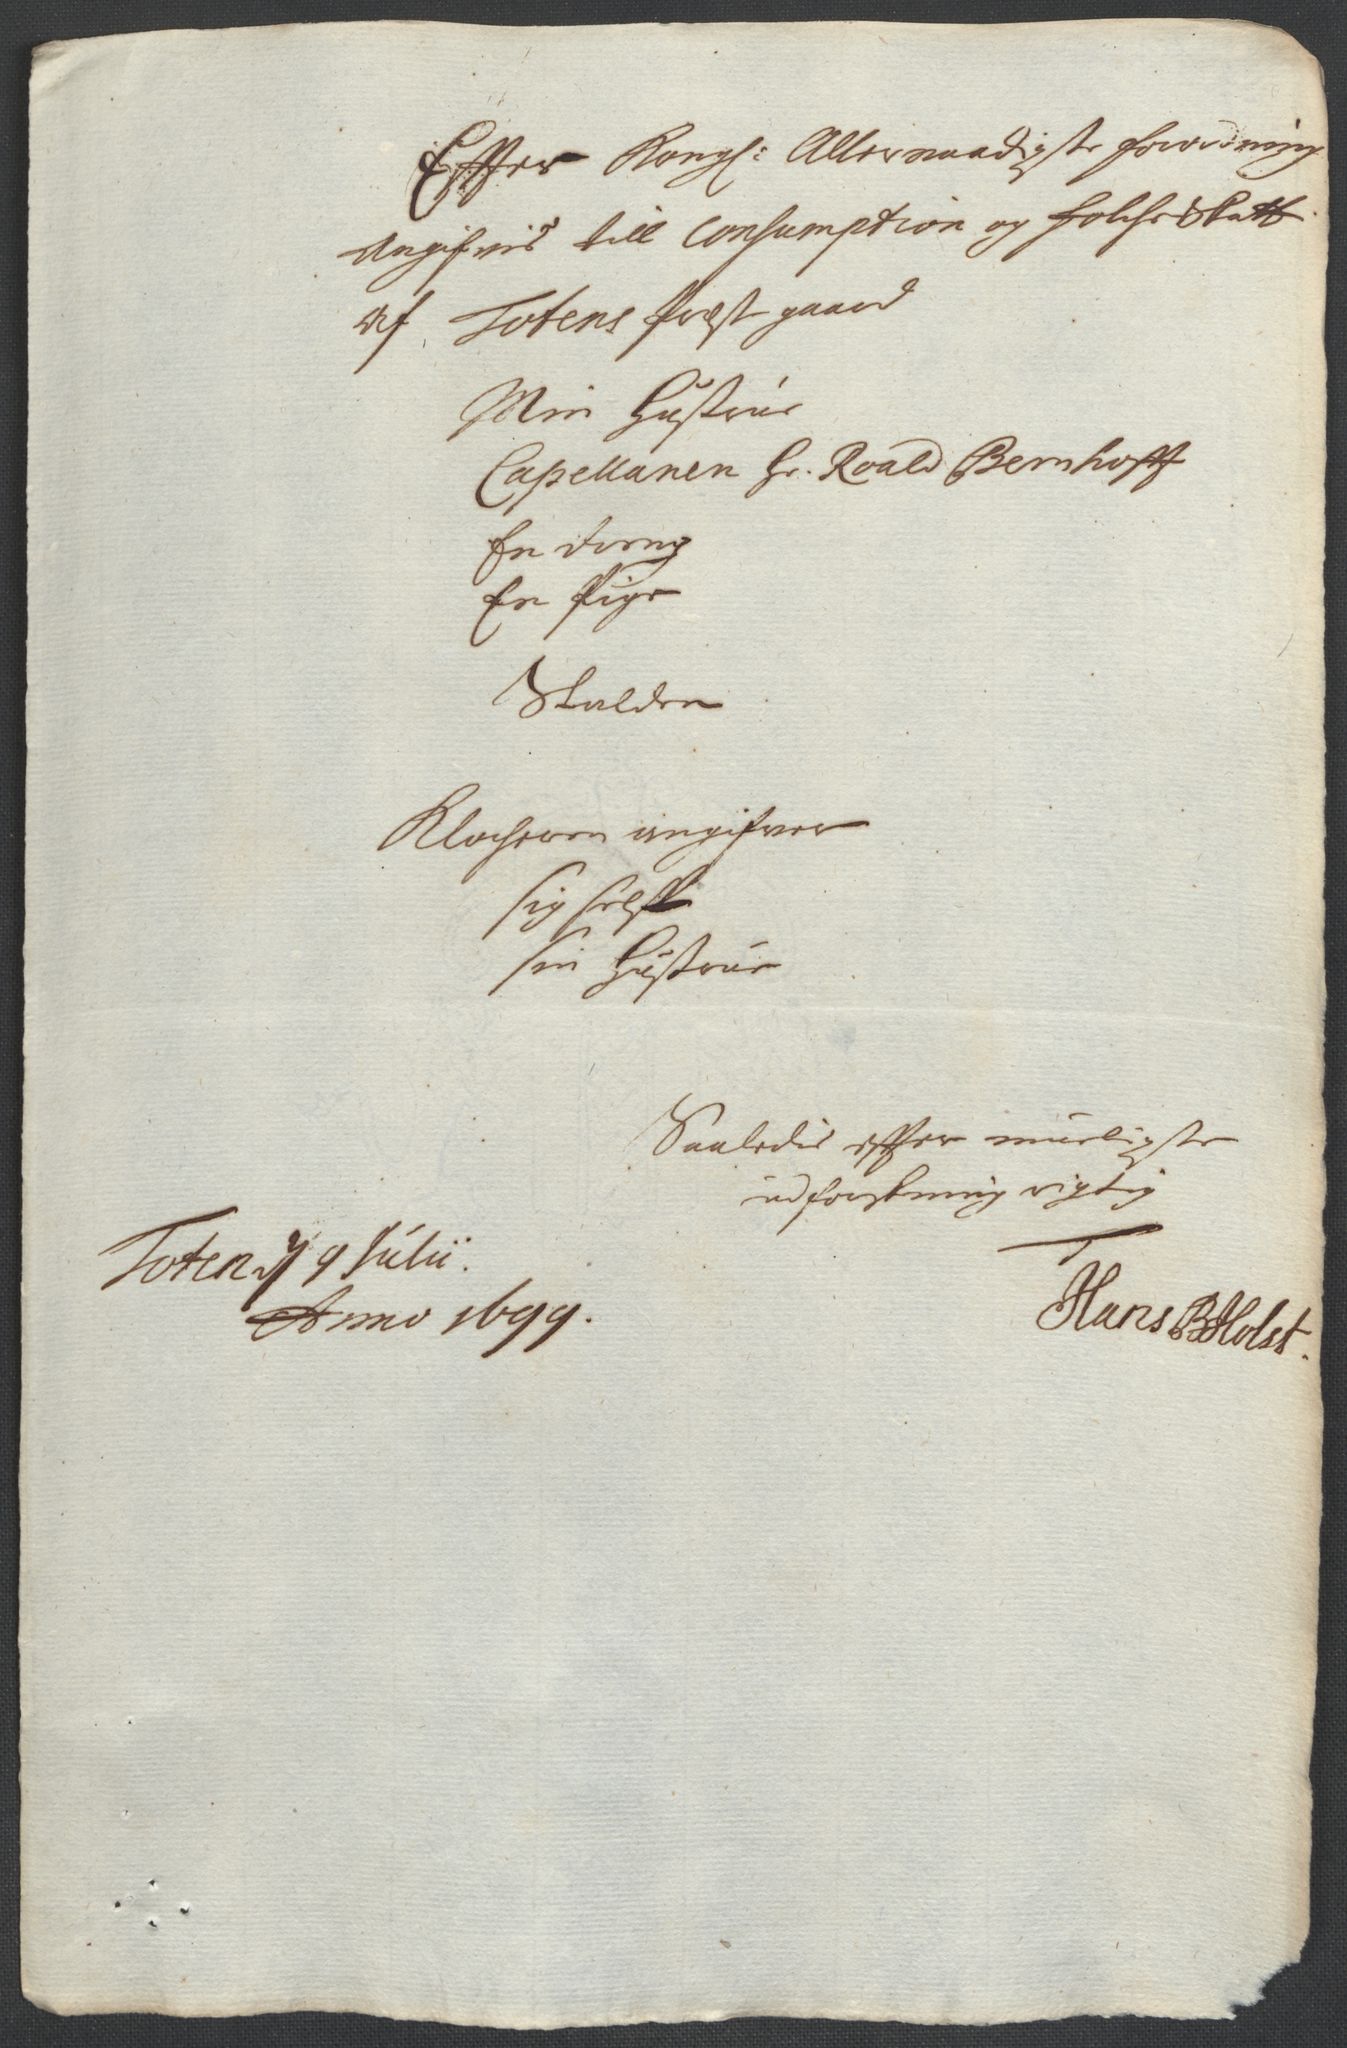 Effter Kongl: Allernaadigste forordning
Angifvis till Consumption og folcheskatt
Af Totens Præstgaard
Min Hustrue
Capellanen Hr. Roald Bernhofft
En dreng
En Pige
Skolden
Klocheren angifver
sig selff
sin Hustrue
Saaledis effter mueligste
udforskning rigtig
Toten d 9 Julii.
Anno 1699.
T
Hans B Holst.